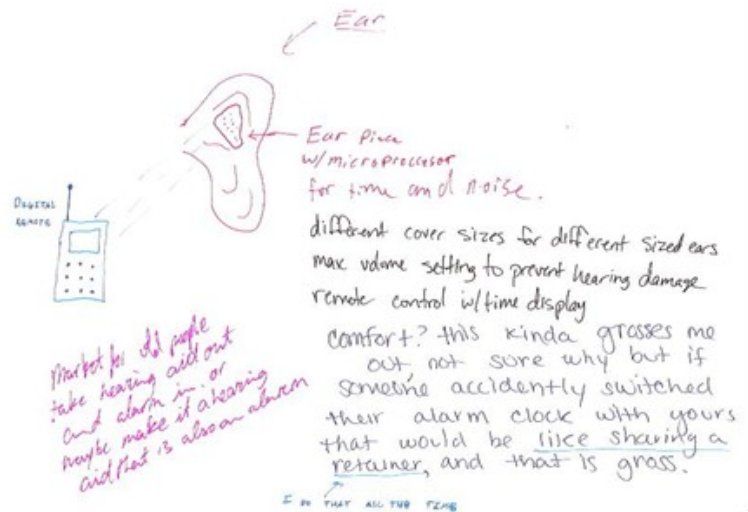 Ear
Ear Piece
w/microproccesor
for time and noise.
DIGITAL
REMOTE
different cover sizes for different sized ears
max volume setting to prevent hearing damage
remote control w/time display
comfort? this kinda grosses me
out, not sure why but if
someone accidently switched
their alarm clock with yours
that would be like sharing a
retainer, and that is gross.
I DO THAT ALL THE TIME
Market for old people
take hearing aid out
and alarm in. or
maybe make it a hearing
aid that is also an alarm